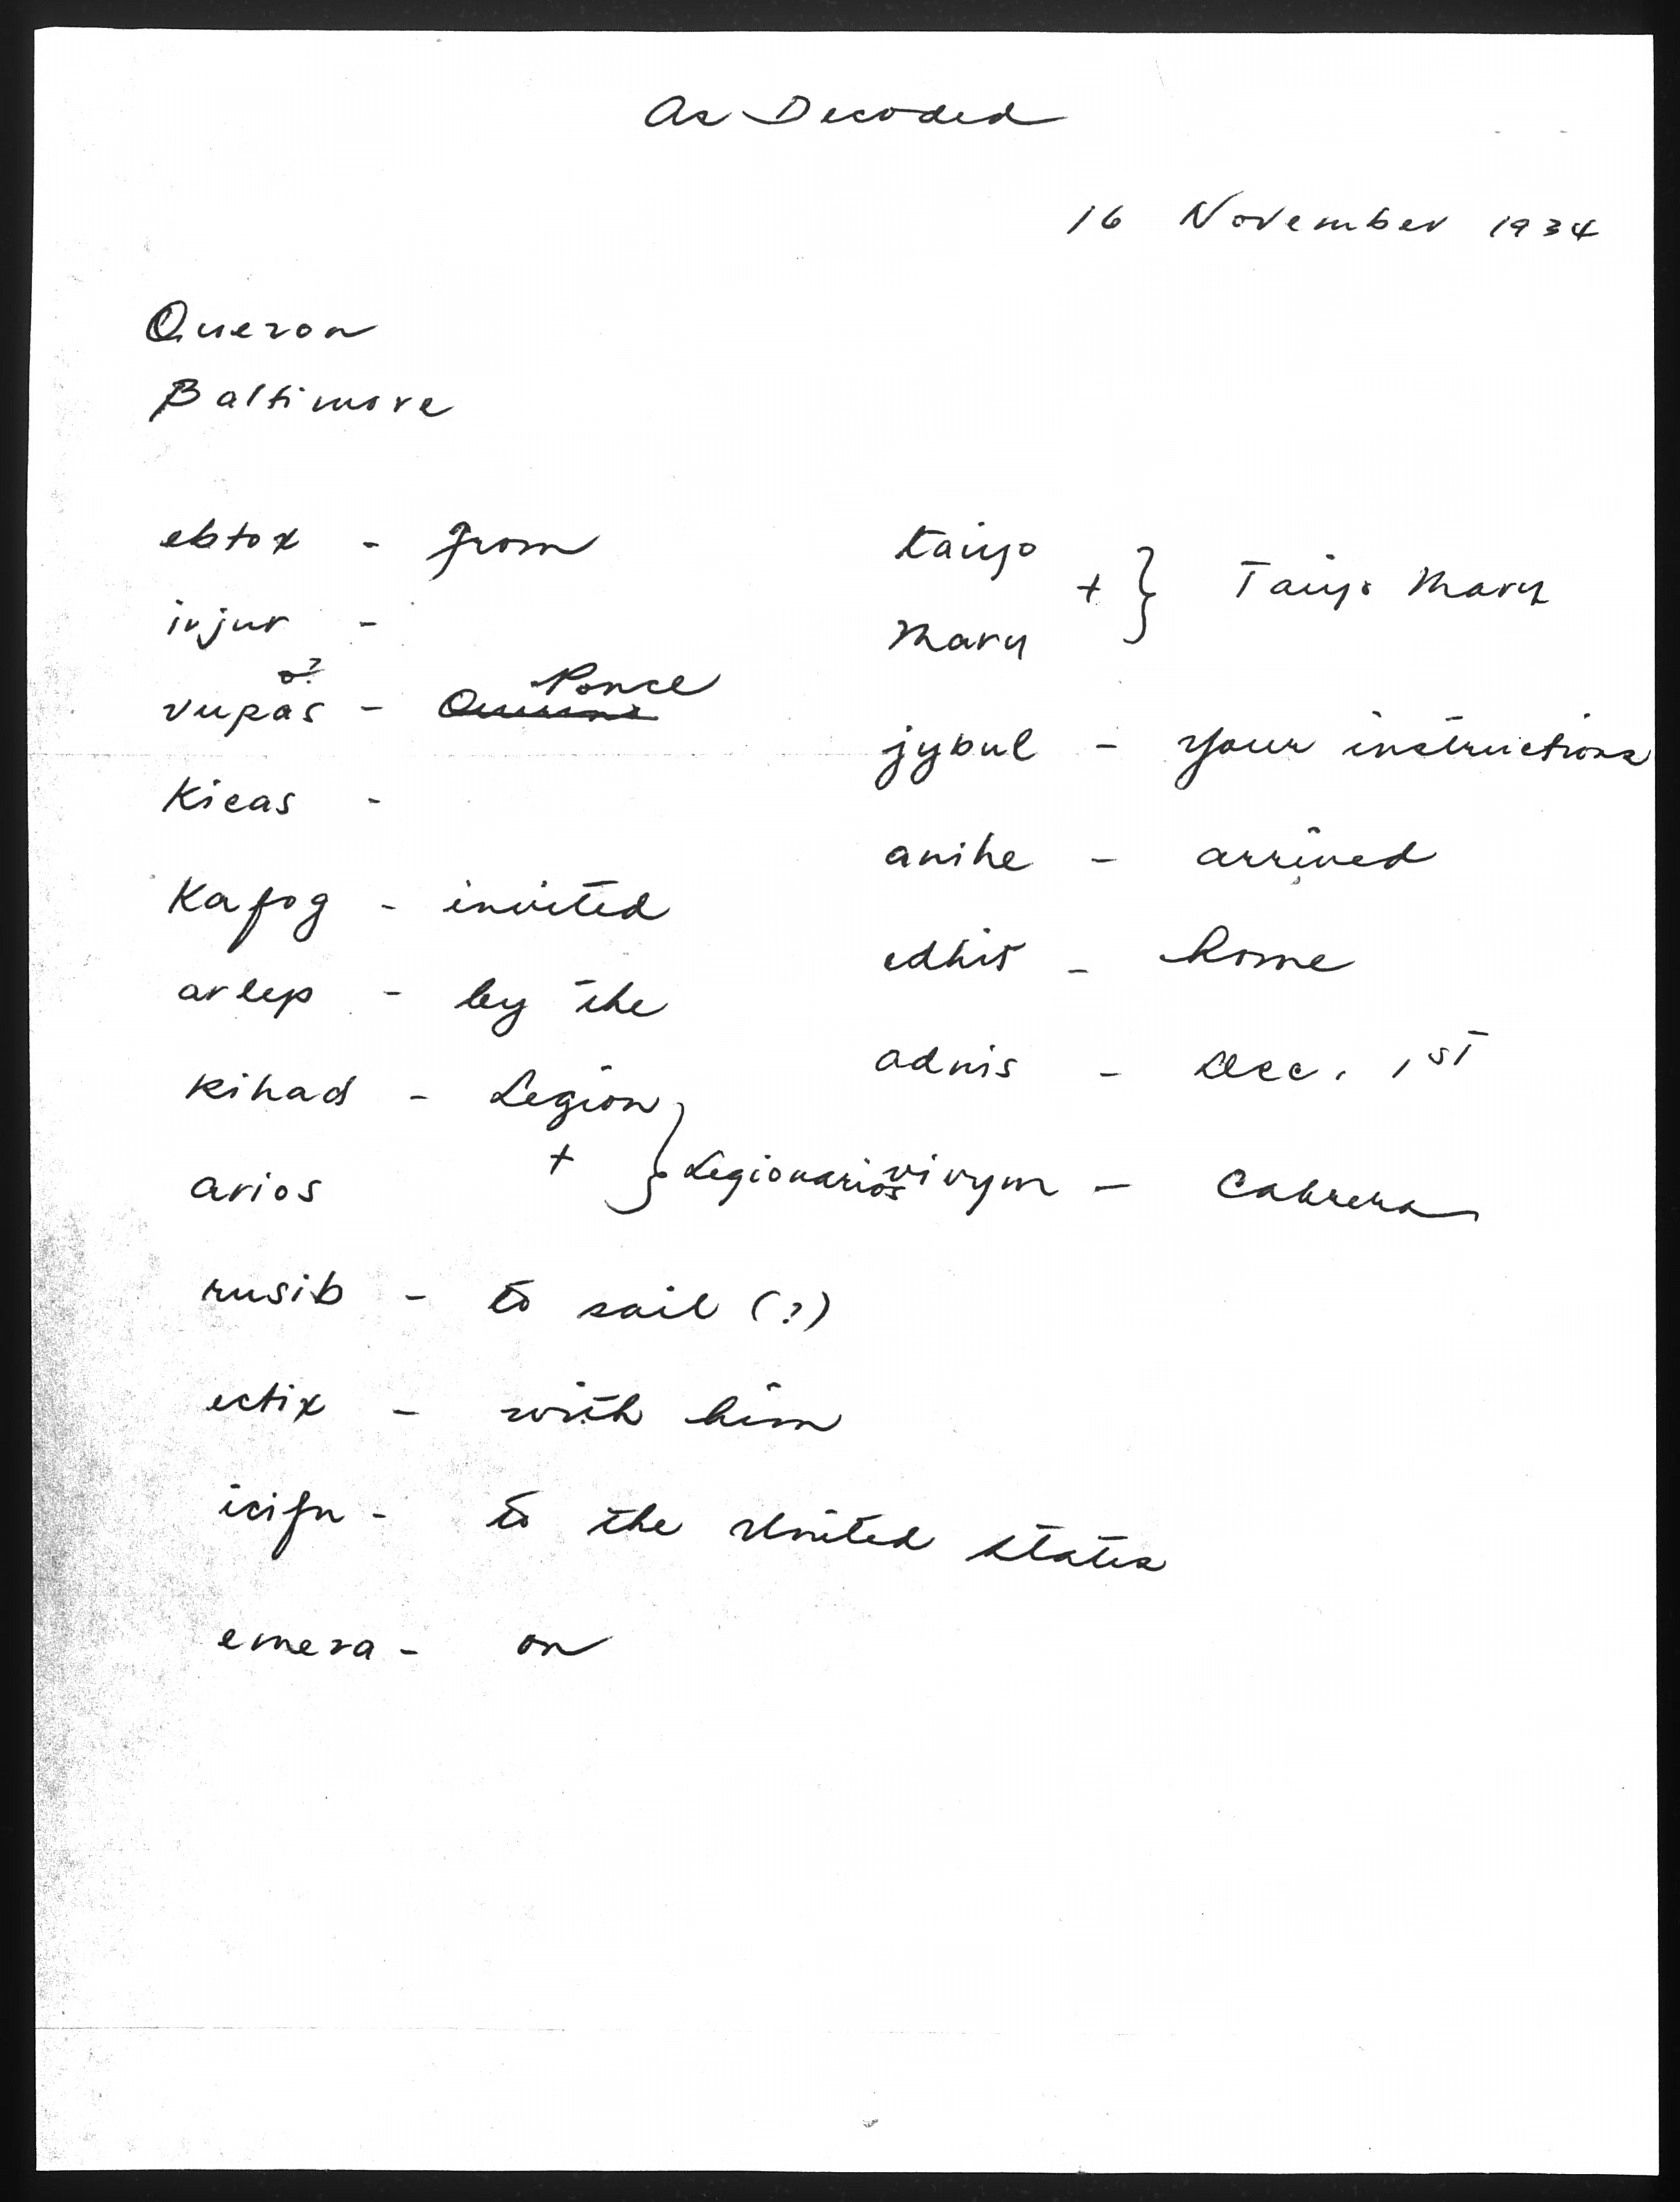 As Decoded
16 November 1934
Quezon
Baltimore
ebtox - from
irjur -
o?
vupas - Ponce
Kicas -
Kafog - invited
arlep - by the
kihad - Legion
+ } Legionarios
arios
rusib - to sail (?)
ectix - with him
icifu - to the United States
emeza - on
taiyo
+ } Taiyo Maru
Maru
jybul - your instructions
anihe - arrived
edhit - home
adnis - Dec. 1st
vivym - Cabrera